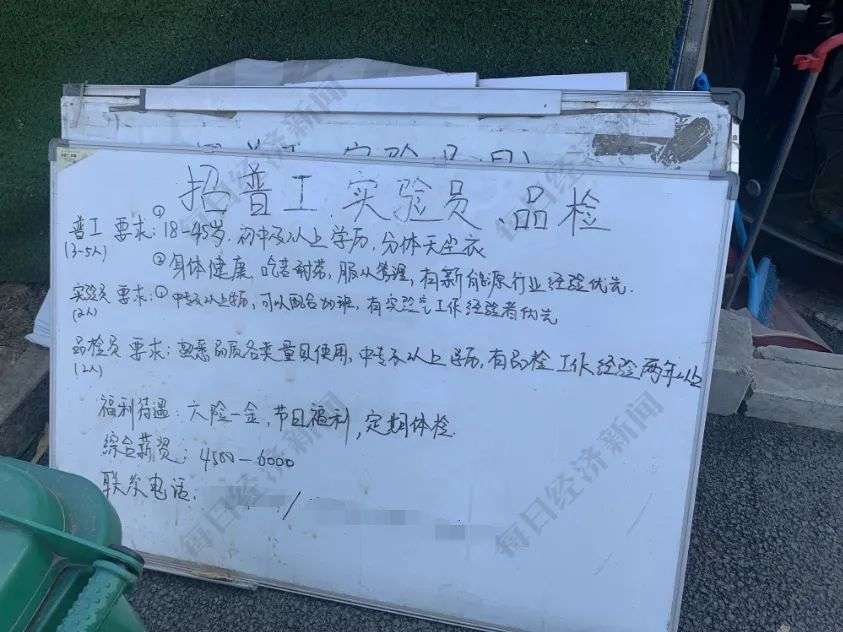 招普工、实验员、品检
普工 要求:①18-45岁,初中及以上学历,分体无尘衣
(3-5人)
②身体健康,吃苦耐劳,服从管理,有新能源行业经验优先.
实验员 要求:①中专及以上学历,可以配合加班,有实验室工作经验者优先
(2人)
品检员 要求:熟悉品质各类量具使用,中专及以上学历,有品检工作经验两年以上
(2人)
福利待遇:六险一金,节日福利,定期体检.
综合薪资:4500-6000
联系电话: /
每日经济新闻
每日经济新闻
每日经济新闻
每日经济新闻